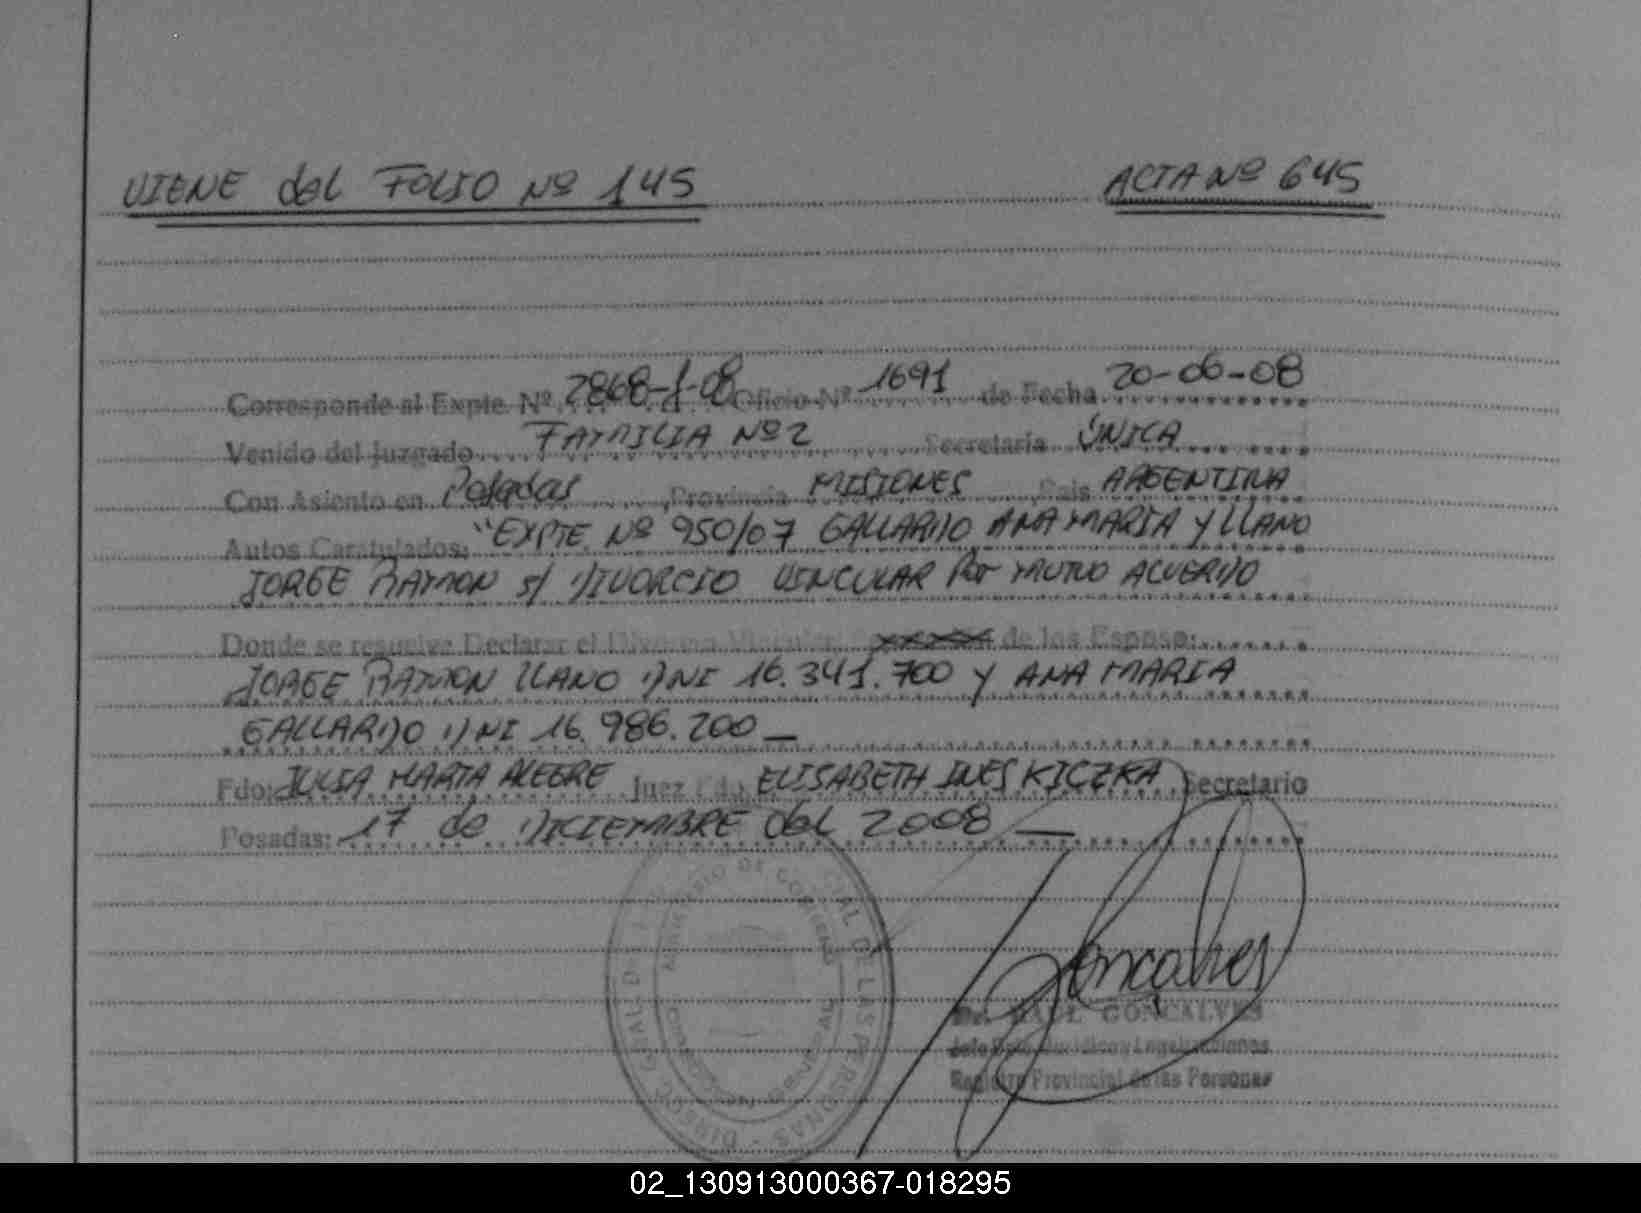 VIENE del FOLIO Nº 145 ACTA Nº 645
Corresponde al Expte Nº 2868-J-08 Oficio Nº 1691 de Fecha 20-06-08
Venido del juzgado FAMILIA Nº 2 Secretaria ÚNICA
Con Asiento en Posadas Provincia MISIONES Pais ARGENTINA
Autos Caratulados: "EXPTE Nº 950/07 GALLARDO ANA MARIA Y LLANO
JORGE RAMON s/ DIVORCIO VINCULAR POR MUTUO ACUERDO
Donde se resuelve Declarar el Divorcio Vincular de los Esposo:
JORGE RAMON LLANO DNI 16.341.700 Y ANA MARIA
GALLARDO DNI 16.986.200
Fdo: JULIA MARTA ALEGRE Juez Fdo ELISABETH INES KICZKA Secretario
Posadas: 17 de DICIEMBRE del 2008
MINISTERIO DE GOBIERNO
DE LAS PERSONAS
Goncalves
Dr. RAUL GONCALVES
Jefe Dpto. Jurídico y Legalizaciones
Registro Provincial de las Personas
02_130913000367-018295